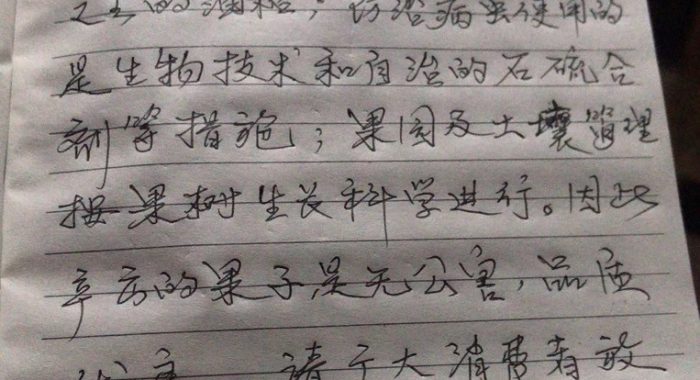 的油粕；防治病虫使用的
是生物技术和自治的石硫合
剂等措施；果园及土壤管理
按果树生长科学进行。因此
的果子是无公害，品质
请广大消费者放